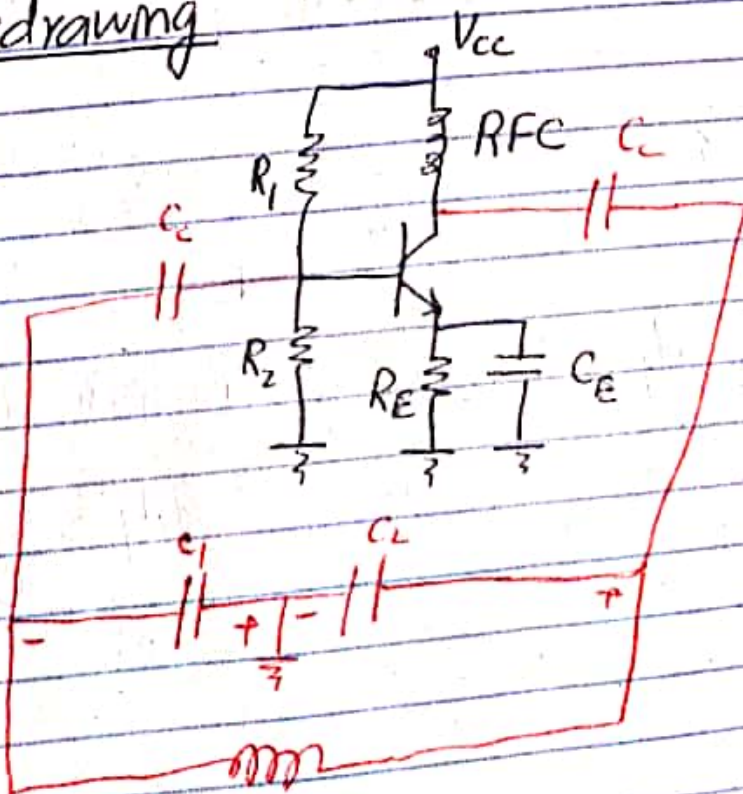 drawing
Vcc
RFC
Cc
R1
Cc
R2
RE
CE
C1
C2
+
-
+
-